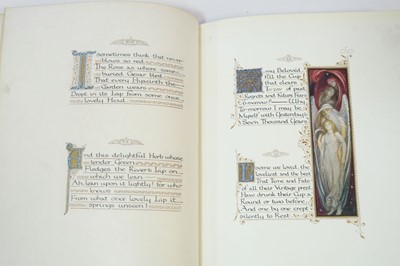 I sometimes think that never
blows so red
The Rose as where some
buried Cæsar bled
That every Hyacinth the
Garden wears
Dropt in its Lap from some once
lovely Head
And this delightful Herb whose
tender Green
Fledges the River's Lip on
which we lean
Ah lean upon it lightly! for who
knows
From what once lovely Lip it
springs unseen!
my Beloved
fill the Cup
that clears
To-day of past
Regrets and future Fears
To-morrow—Why
To-morrow I may be
Myself with Yesterday's
Sev'n Thousand Years
some we loved, the
loveliest and the best
That Time and Fate
of all their Vintage prest
Have drunk their Cup a
Round or two before
And one by one crept
silently to Rest